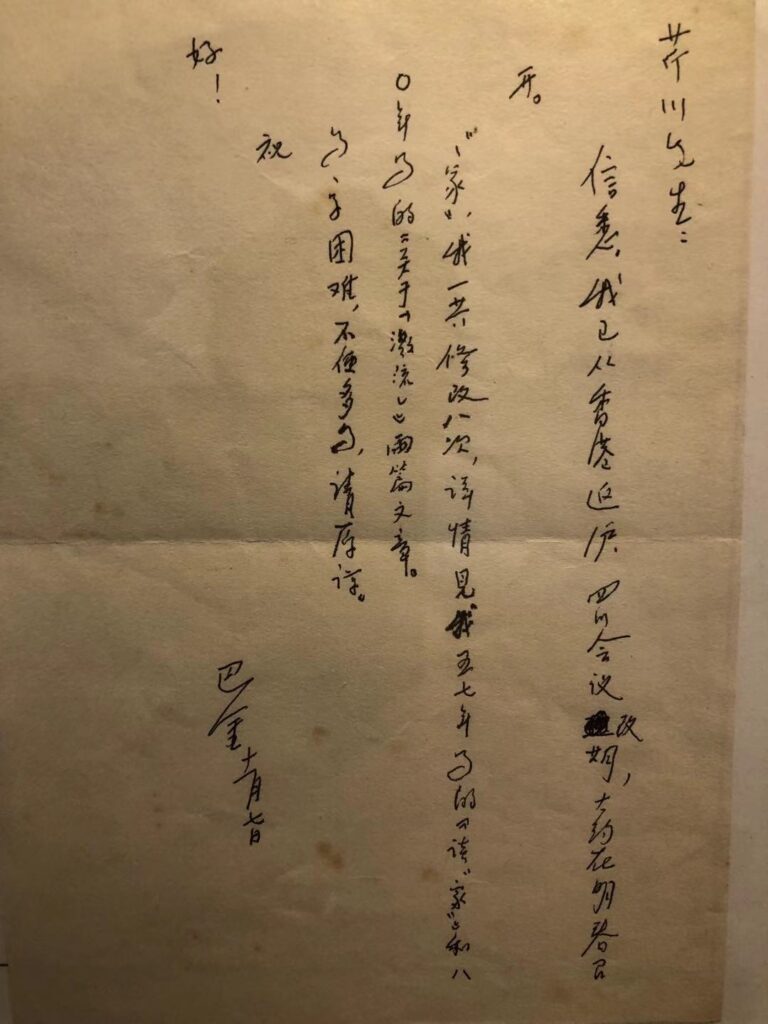 芹川先生：
信悉。我已从香港返沪。四川会议改期，大约在明春召
开。
《家》，我一共修改八次，详情见我五七年写的《谈《家》》和八
〇年写的《关于《激流》》两篇文章。
写字困难，不便多写，请原谅。
祝
好！
巴金
十一月七日